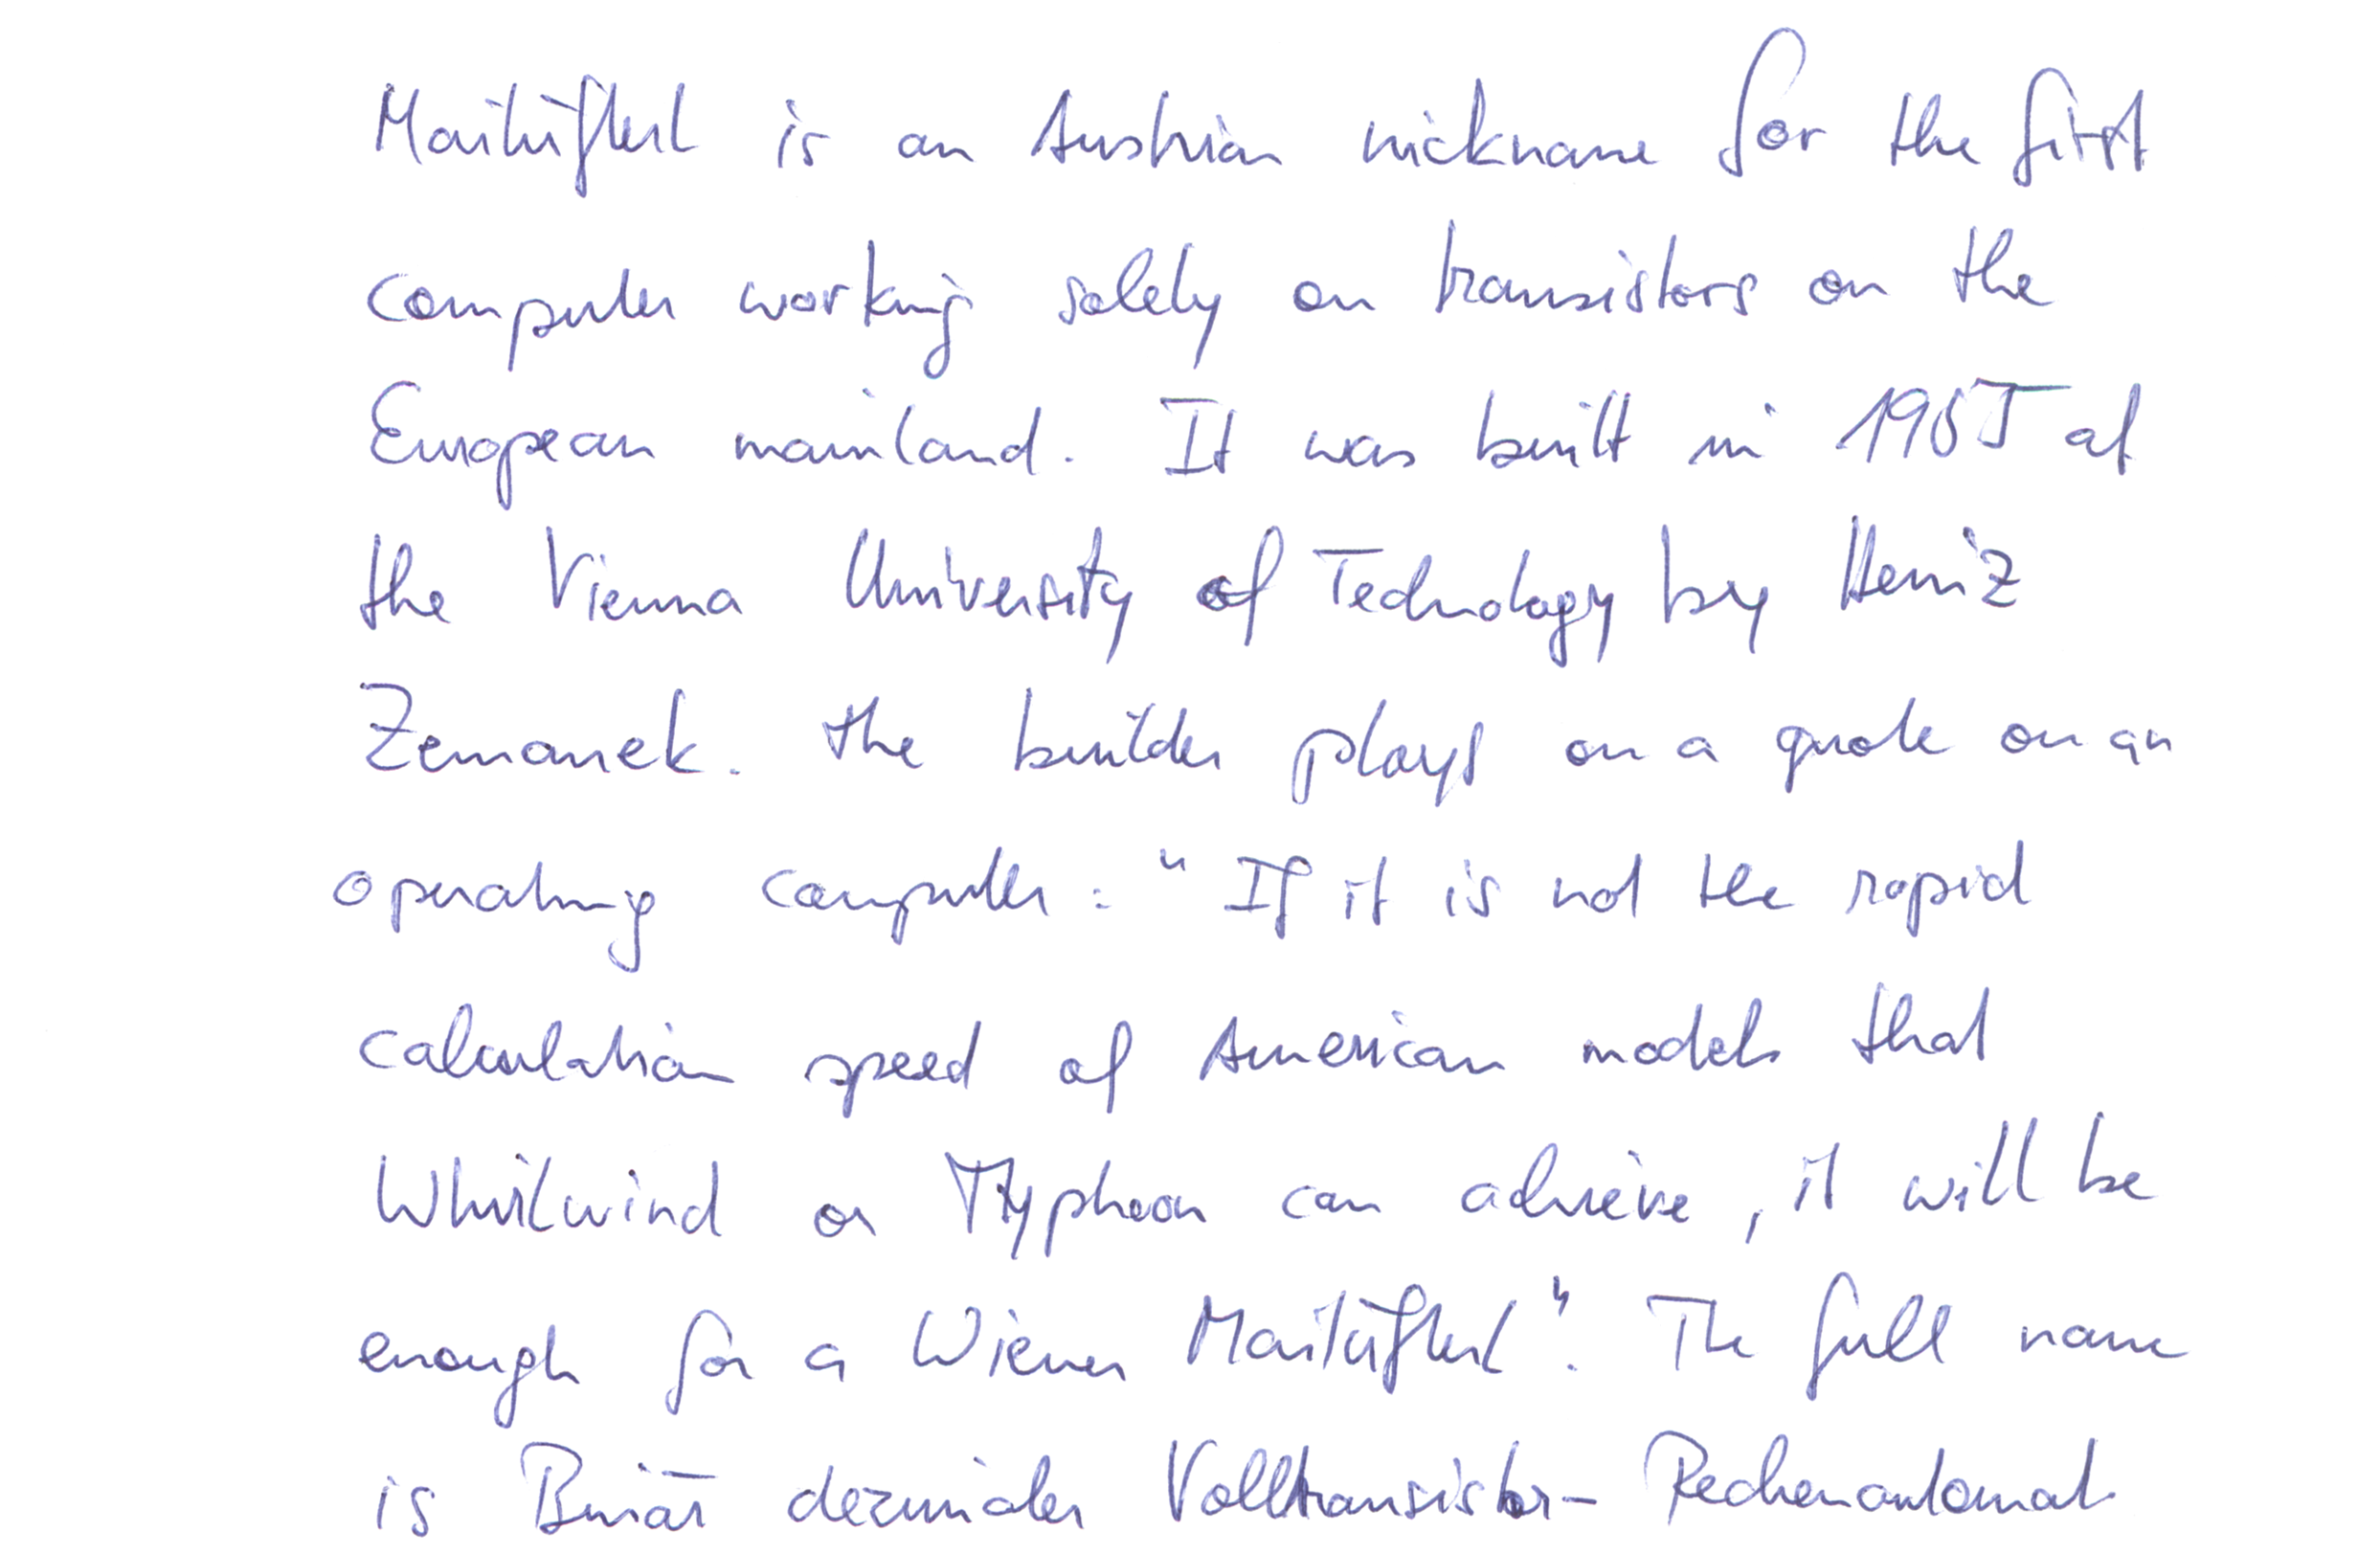 Mailüfterl is an Austrian nickname for the first
computer working solely on transistors on the
European mainland. It was built in 1955 at
the Vienna University of Technology by Heinz
Zemanek. The builder plays on a quote on an
operating computer: "If it is not the rapid
calculation speed of American models that
Whirlwind or Typhoon can achieve, it will be
enough for a Wiener Mailüfterl". The full name
is Binär dezimaler Volltransistor-Rechenautomat